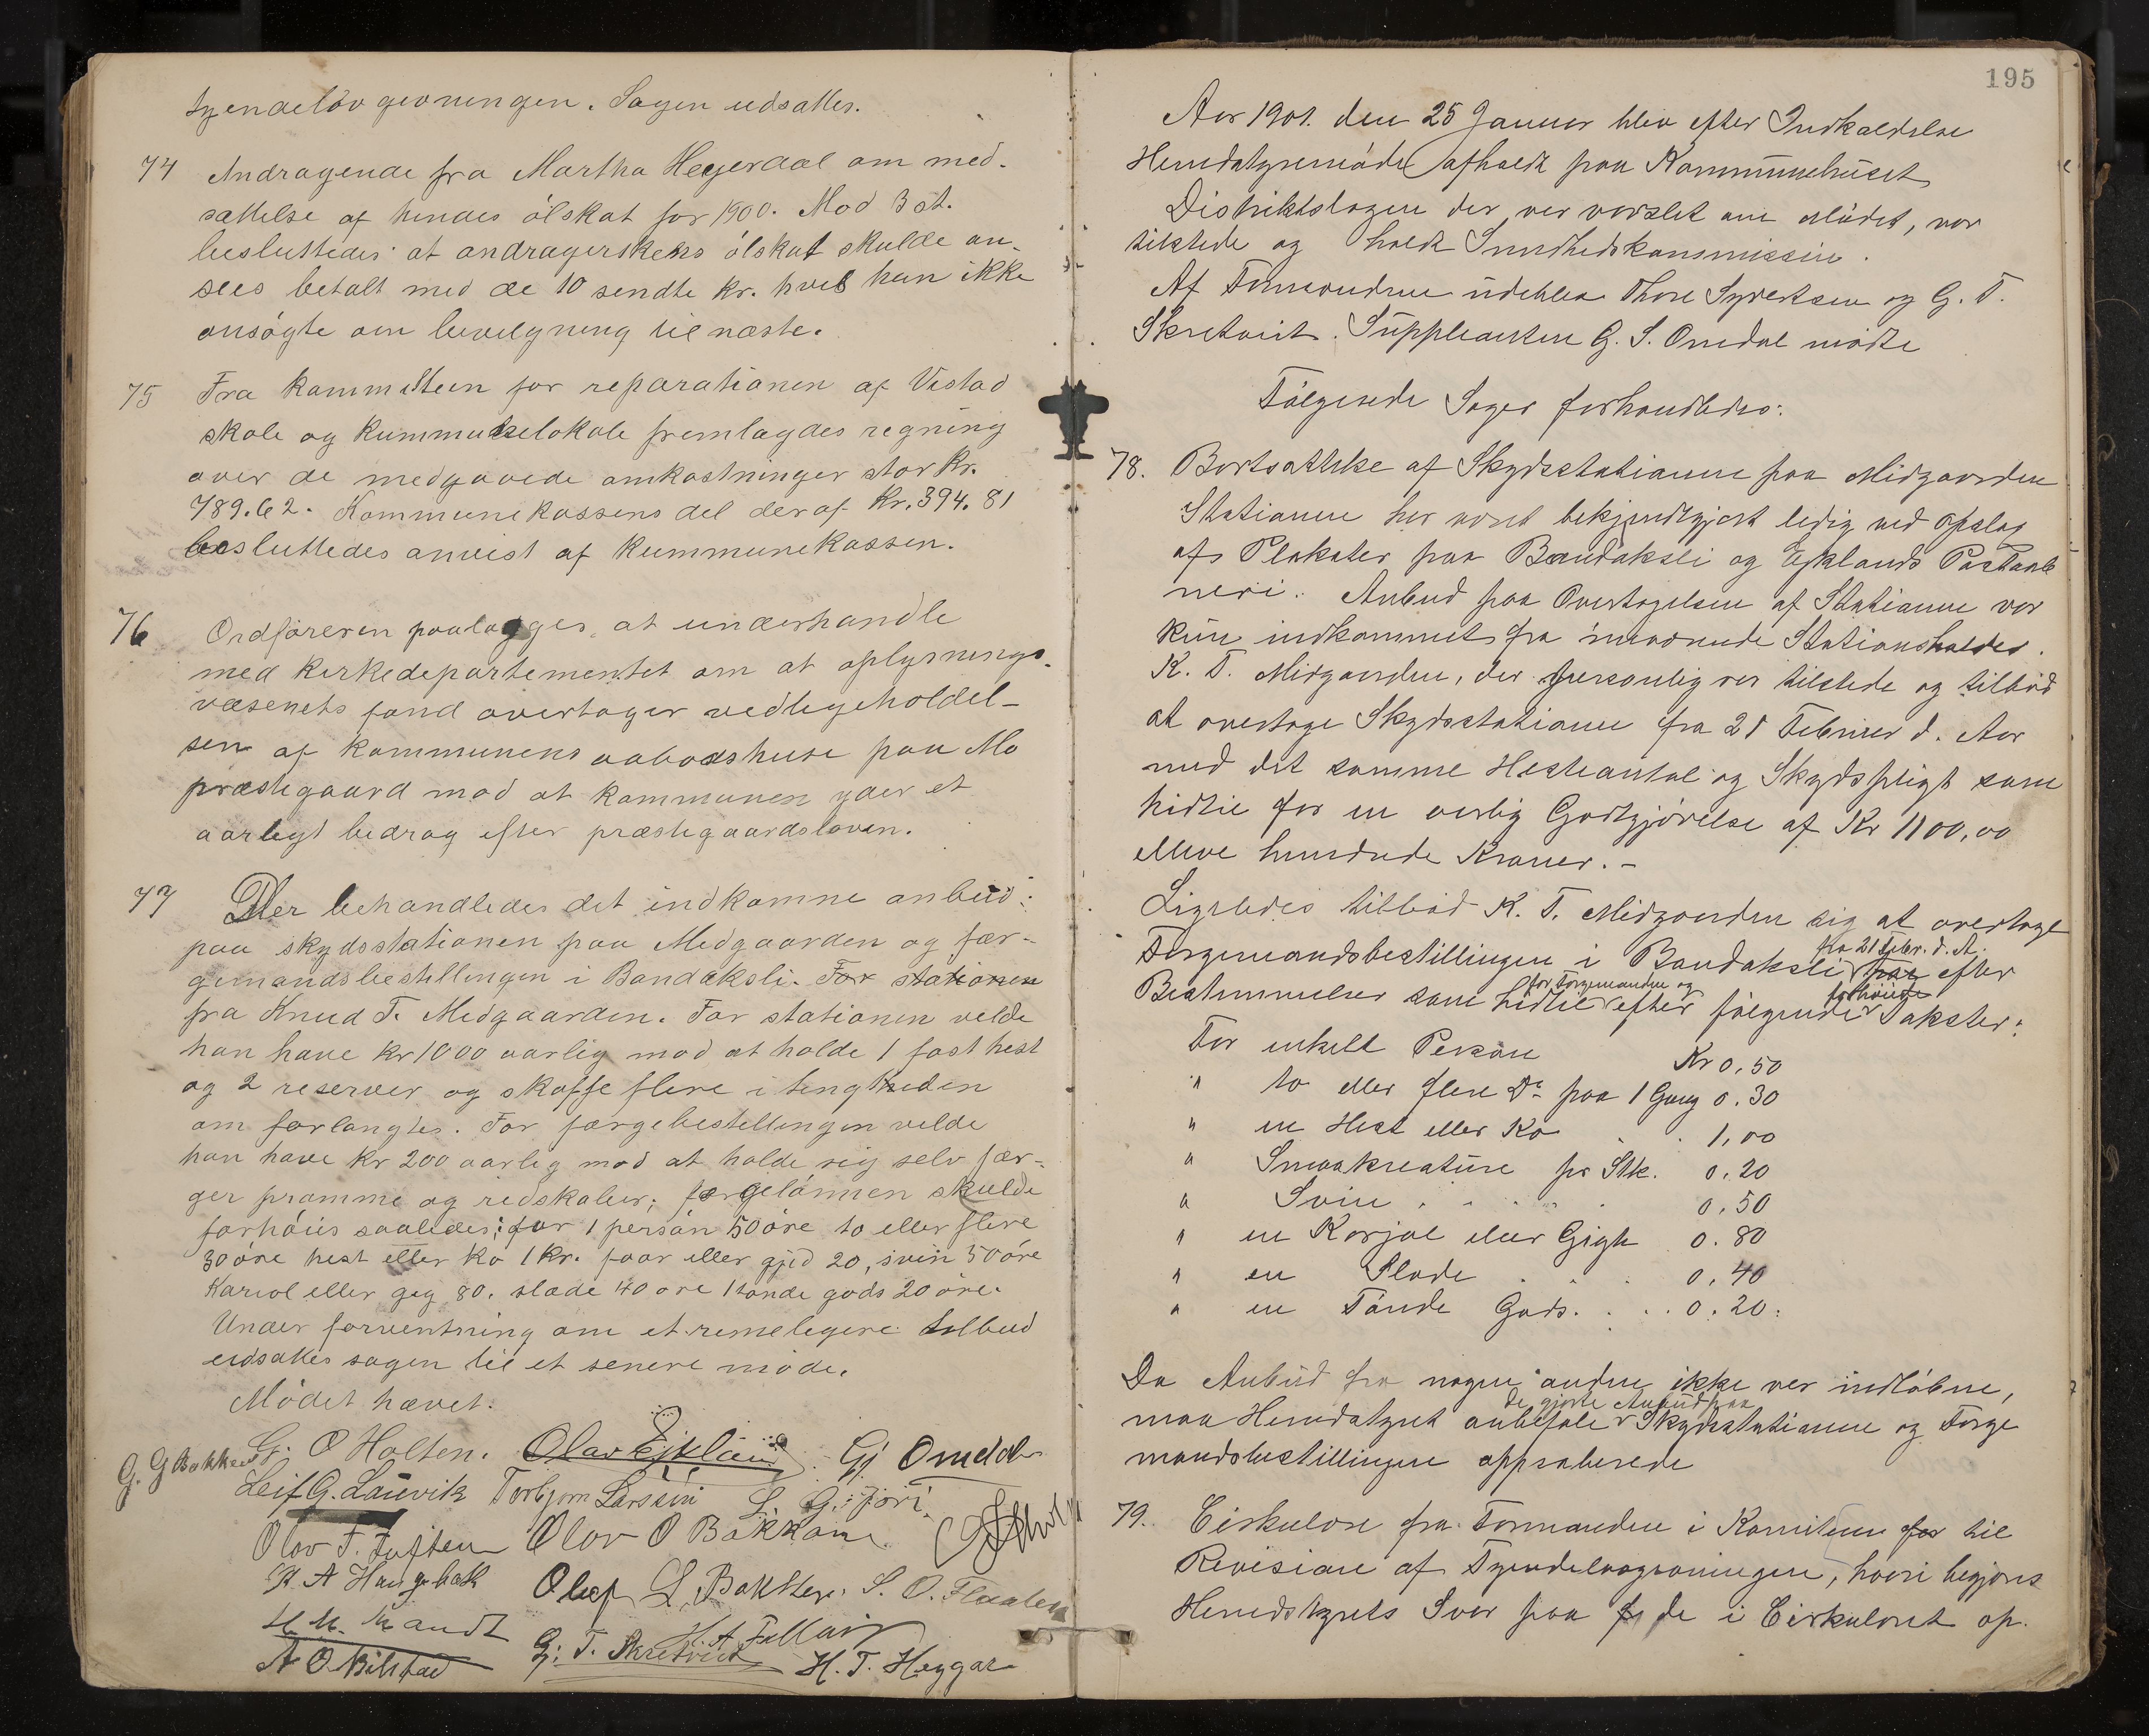 tyendelovgevningen. Sagen udsattes.
74 Andragende fra Martha Heyerdal om ned-
sættelse af hendes ölskat for 1900. Mod 3 st.
besluttedes at andragerskens ölskat skulde an-
sees betalt med de 10 sendte kr. hvis hun ikke
ansögte om bevilgning til næste.
75 Fra kommiteen for reparationen af Vistad
skole og kummunelokale fremlagdes regning
over de medgaaede omkostninger stor kr.
789.62. Kommunekassens del deraf kr. 394.81
besluttedes anvist af kummunekassen.
76 Ordföreren paalægges at underhandle
med kirkedepartementet om at oplysnings-
væsenets fond overtager vedligeholdel-
sen af kommunens aabodshuse paa Mo
præstegaard mod at kommunen yder et
aarligt bedrag efter præstegaardsloven.
77 Der behandledes det indkomne anbud
paa skydsstationen paa Midgaarden og fær-
gemandsbestillingen i Bandaksli. For stationen
fra Knud T. Midgaarden. For stationen vilde
han have kr 1000 aarlig mod at holde 1 fast hest
og 2 reserver og skaffe flere i lengheden
om forlangtes. For færgebestillingen vilde
han have kr 200 aarlig mod at holde sig selv fær-
ger pramme og redskaber; færgelönnen skulde
forhöies saaledes: for 1 person 50 öre to eller flere
30 öre hest eller ko 1 kr. faar eller gjed 20, svin 50 öre
Kariol eller gig 80. slæde 40 öre 1 tönde gods 20 öre.
Under forventning om et rimeligere tilbud
udsattes sagen til et senere möde.
Mödet hævet.
G. G Bakken Gr. O Holten. Olav Eikland Gj Omdal
Leif G. Lauvik Torbjørn Larssen S. G. Fjori
Olav T. Tuften Olov O Bakkane
K. A Haugebak Olaf L. Bakken. S. O. Flaaten
H. M. Mandt G. T. Skretveit H. A
A O. Bilstad H. T. Heggar
195
Aar 1901. den 25 Januar blev efter Indkaldelse
Herredstyremöde afholdt paa Kommunehuset
Distriktslægen der var varslet om Mödet, var
tilstede og holdt Sundhedskommission.
Af Formændene udeblev Thore Syvertsen og G. T.
Skretveit. Suppleanten G. S. Omdal mödte
Fölgende Sager forhandledes:
78. Bortsættelse af Skydsstationen paa Midgaarden
Stationen har været bekjendtgjort ledig ved Opslag
af Plakater paa Bandaksli og Eiklands Postaab-
neri. Anbud paa Overtagelsen af Stationen var
kun indkommet fra nuværende Stationsholder
K. T. Midgaarden, der personlig var tilstede og tilböd
at overtage Skydsstationen fra 21 Februar d. Aar
med det samme Hesteantal og Skydspligt som
hidtil for en aarlig Godtgjörelse af Kr 1100,00
elleve hundrede Kroner. -
Ligeledes tilböd K. T. Midgaarden sig at overtage
Færgemandsbestillingen i Bandaksli fra 21 Febr. d. A. efter
Bestemmelser som hidtil for Færgemanden og efter fölgende forhöiede Takster:
For enkelt Person Kr 0,50
" to eller flere Do paa 1 Gang 0.30
" en Hest eller Ko . . 1,00
" Smaakreature pr Stk. 0.20
" Svin . . . . 0,50
" en Karjol eller Gigh 0.80
" en Slæde . . . 0,40
" en Tönde Gods. . . . 0.20.
Da Anbud fra nogen anden ikke var indlöbne,
maa Herredstyret anbefale de gjorte Anbud paa Skydsstationen og Færge
mandsbestillingen approberede
79. Cirkulære fra Formanden i Komiteen for til
Revision af Tyendelovgivningen, hvori begjæres
Herredstyrets Svar paa de i Cirkulæret op-